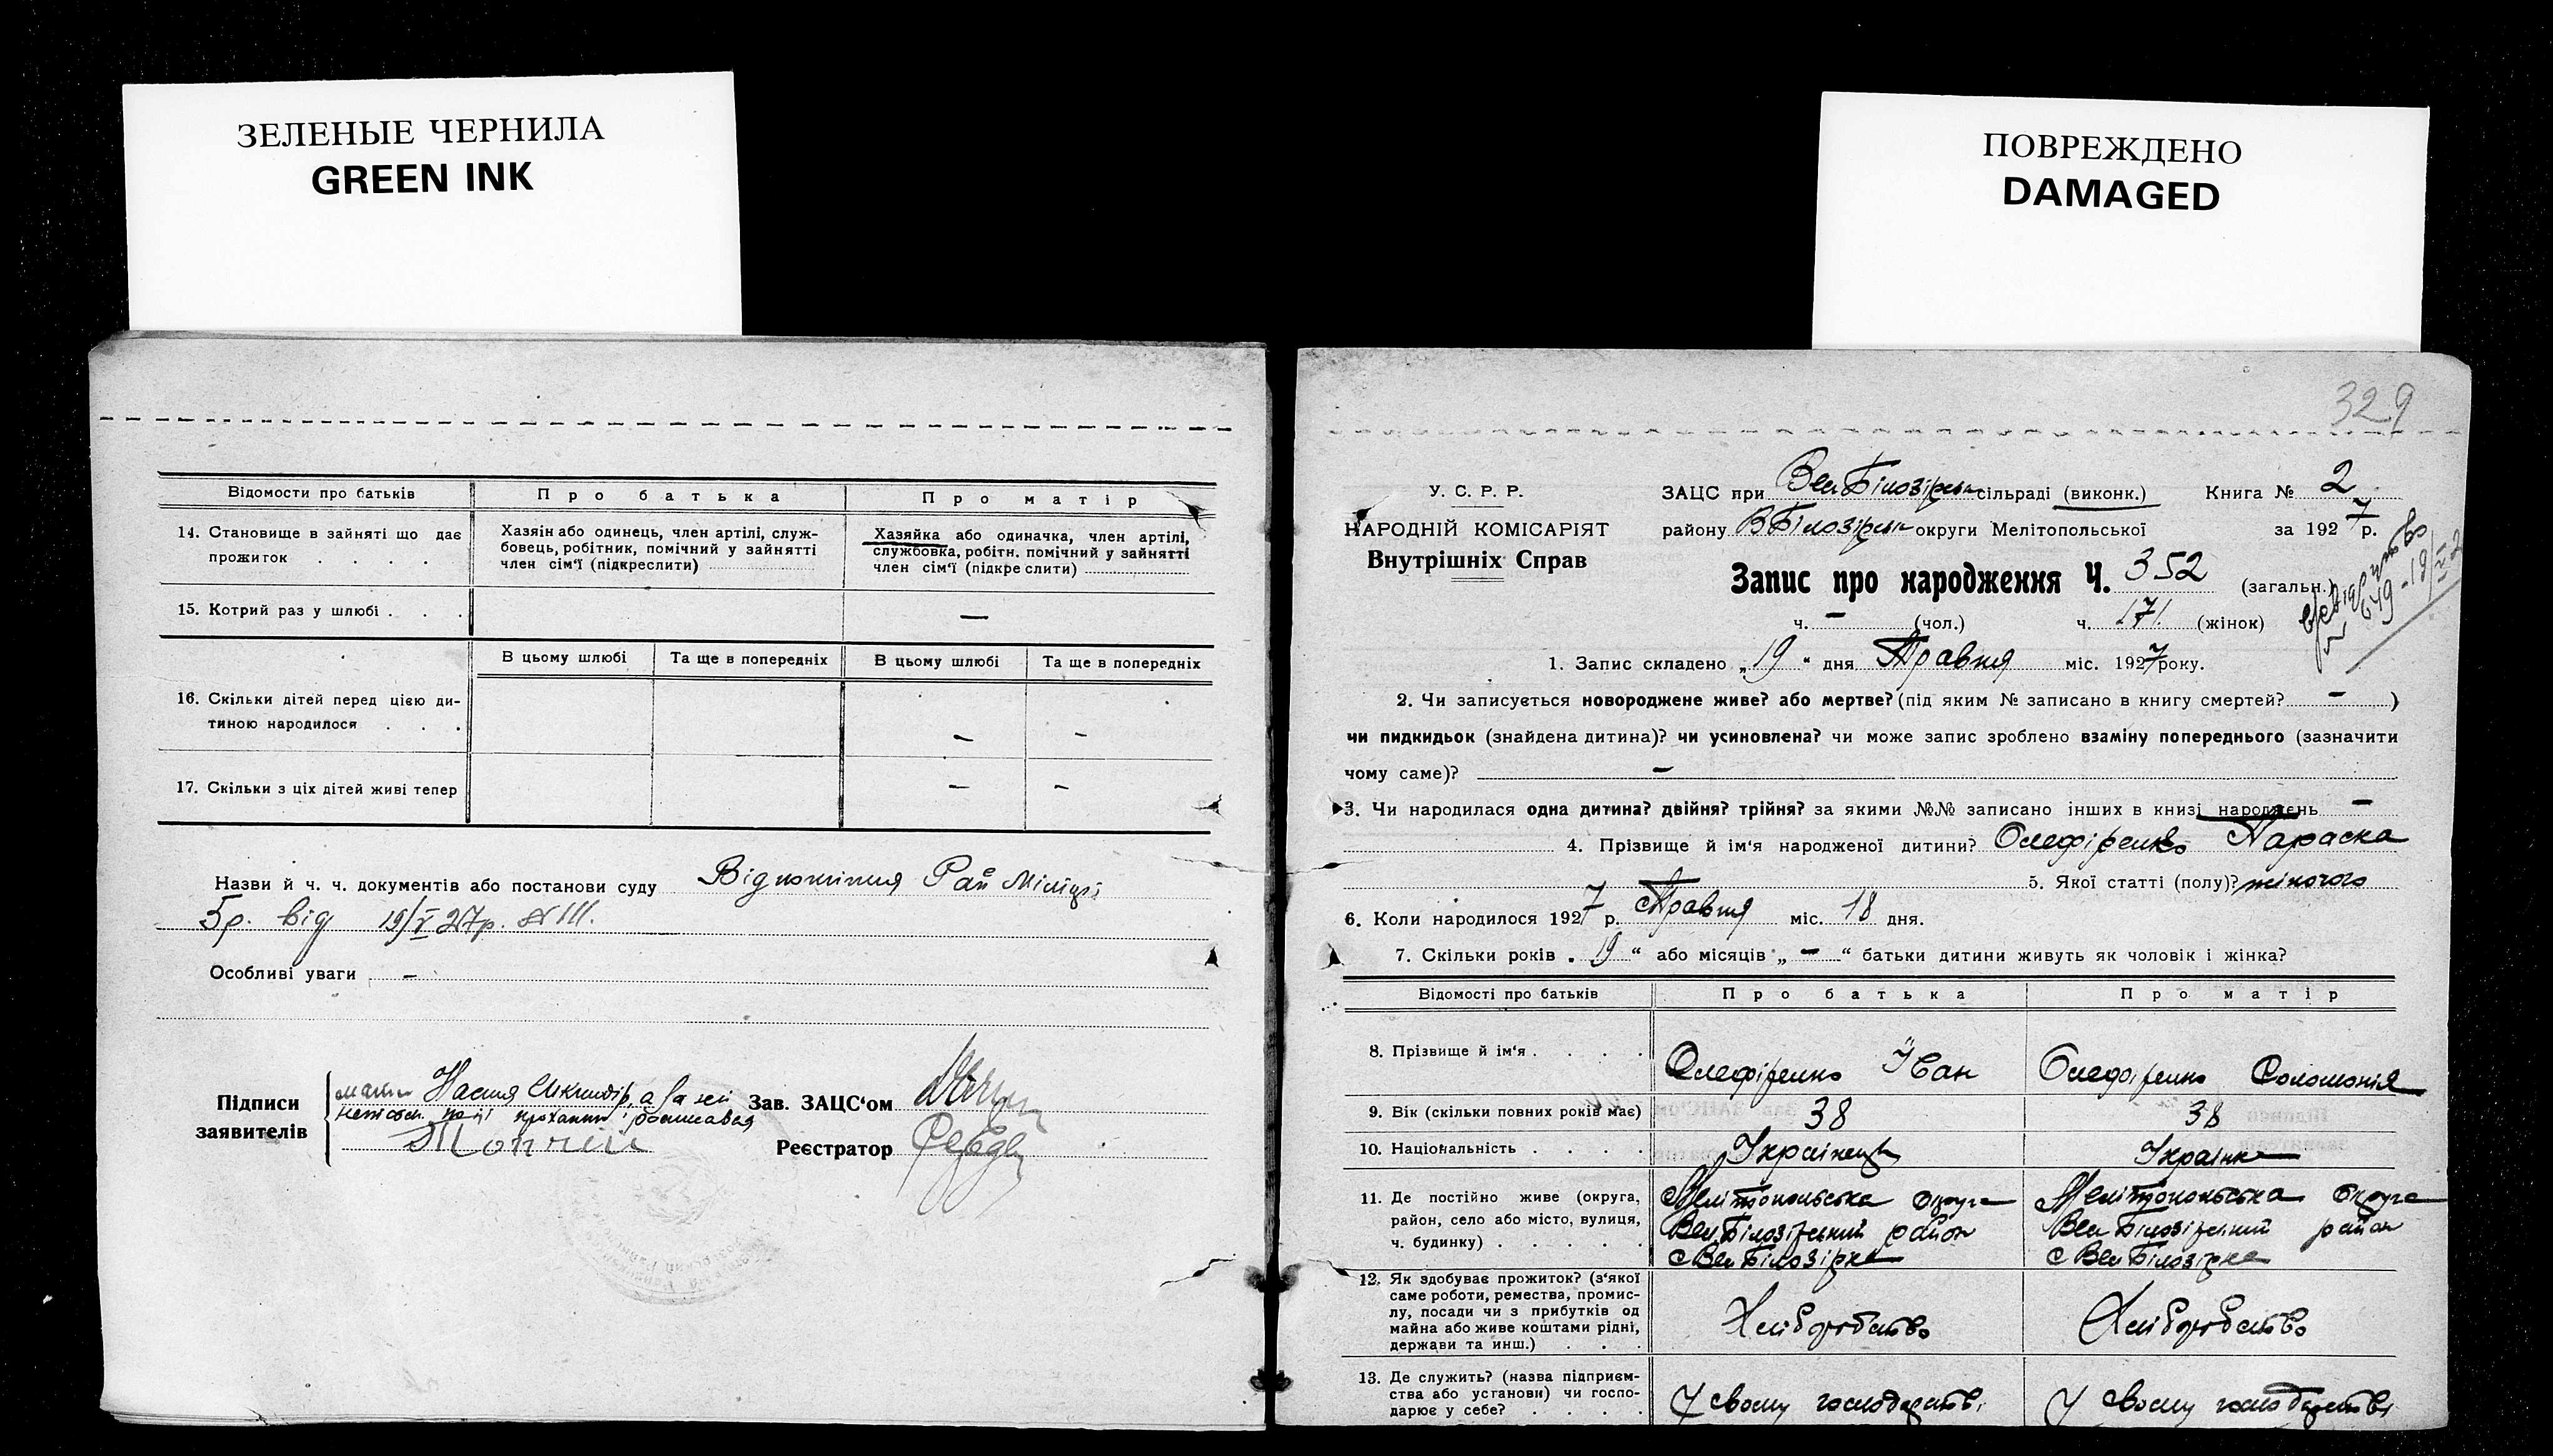 ЗЕЛЕНЫЕ ЧЕРНИЛА
GREEN INK
ПОВРЕЖДЕНО
DAMAGED
Відомости про батьків
Про батька
Про матір
14. Становище в зайняті що дає прожиток . . . .
Хазяін або одинець, член артілі, служ-
бовець, робітник, помічний у зайнятті
член сім'ї (підкреслити)
Хазяйка або одиначка, член артілі,
службовка, робітн. помічний у зайнятті
член сім'ї (підкреслити)
15. Котрий раз у шлюбі . . .
—
В цьому шлюбі
Та ще в попередніх
В цьому шлюбі
Та ще в попередніх
16. Скільки дітей перед цією ди-
тиною народилося . . .
— —
17. Скільки з ціх дітей живі тепер
— —
Назви й ч. ч. документів або постанови суду Відношення Рай Міліції
Бр. від 19/V 27р. № 111.
Особливі уваги —
Підписи
заявителів
мати Настя а за неї
прохання росписався
Зав. ЗАЦС'ом
Реєстратор
329
У. С. Р. Р.
НАРОДНІЙ КОМІСАРІЯТ
Внутрішніх Справ
ЗАЦС при Вел Білозірськ сільраді (виконк.) Книга № 2
району ВБілозірськ округи Мелітопольської за 1927 р.
Запис про народження Ч. 352 (загальн.)
ч. — (чол.) ч. 171 (жінок)
1. Запис складено „19" дня Травня міс. 1927 року.
2. Чи записується новороджене живе? або мертве? (під яким № записано в книгу смертей? — )
чи пидкидьок (знайдена дитина)? чи усиновлена? чи може запис зроблено взаміну попереднього (зазначити
чому саме)? —
3. Чи народилася одна дитина? двійня? трійня? за якими №№ записано інших в книзі народжень —
4. Прізвище й ім'я народженої дитини? Олефіренко Параска
5. Якої статті (полу)? жіночого
6. Коли народилось 1927 р. Травня міс. 18 дня.
7. Скільки років „19" або місяців „—" батьки дитини живуть як чоловік і жінка?
Відомості про батьків
Про батька
Про матір
8. Прізвище й ім'я . . . .
Олефіренко Іван
Олефіренко Соломонія
9. Вік (скільки повних років має)
38
38
10. Національність . . . .
Українець
Українка
11. Де постійно живе (округа,
район, село або місто, вулиця,
ч. будинку) . . . . .
Мелітопольська округа
Вел.Білозірський район
с Вел Білозірка
Мелітопольська округа
Вел Білозірський район
с Вел Білозірка
12. Як здобуває прожиток? (з'якої
саме роботи, ремества, промис-
лу, посади чи з прибутків од
майна або живе коштами рідні,
держави та инш.) . . .
Хліборобство
Хліборобство
13. Де служить? (назва підприєм-
ства або установи) чи госпо-
дарює у себе? . . . .
У свому господарстві
У свому господарстві